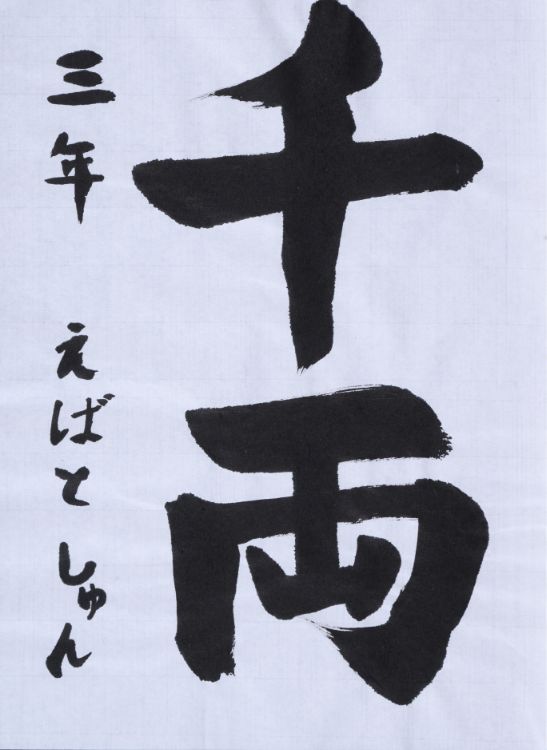 千両
三年 えばと しゅん